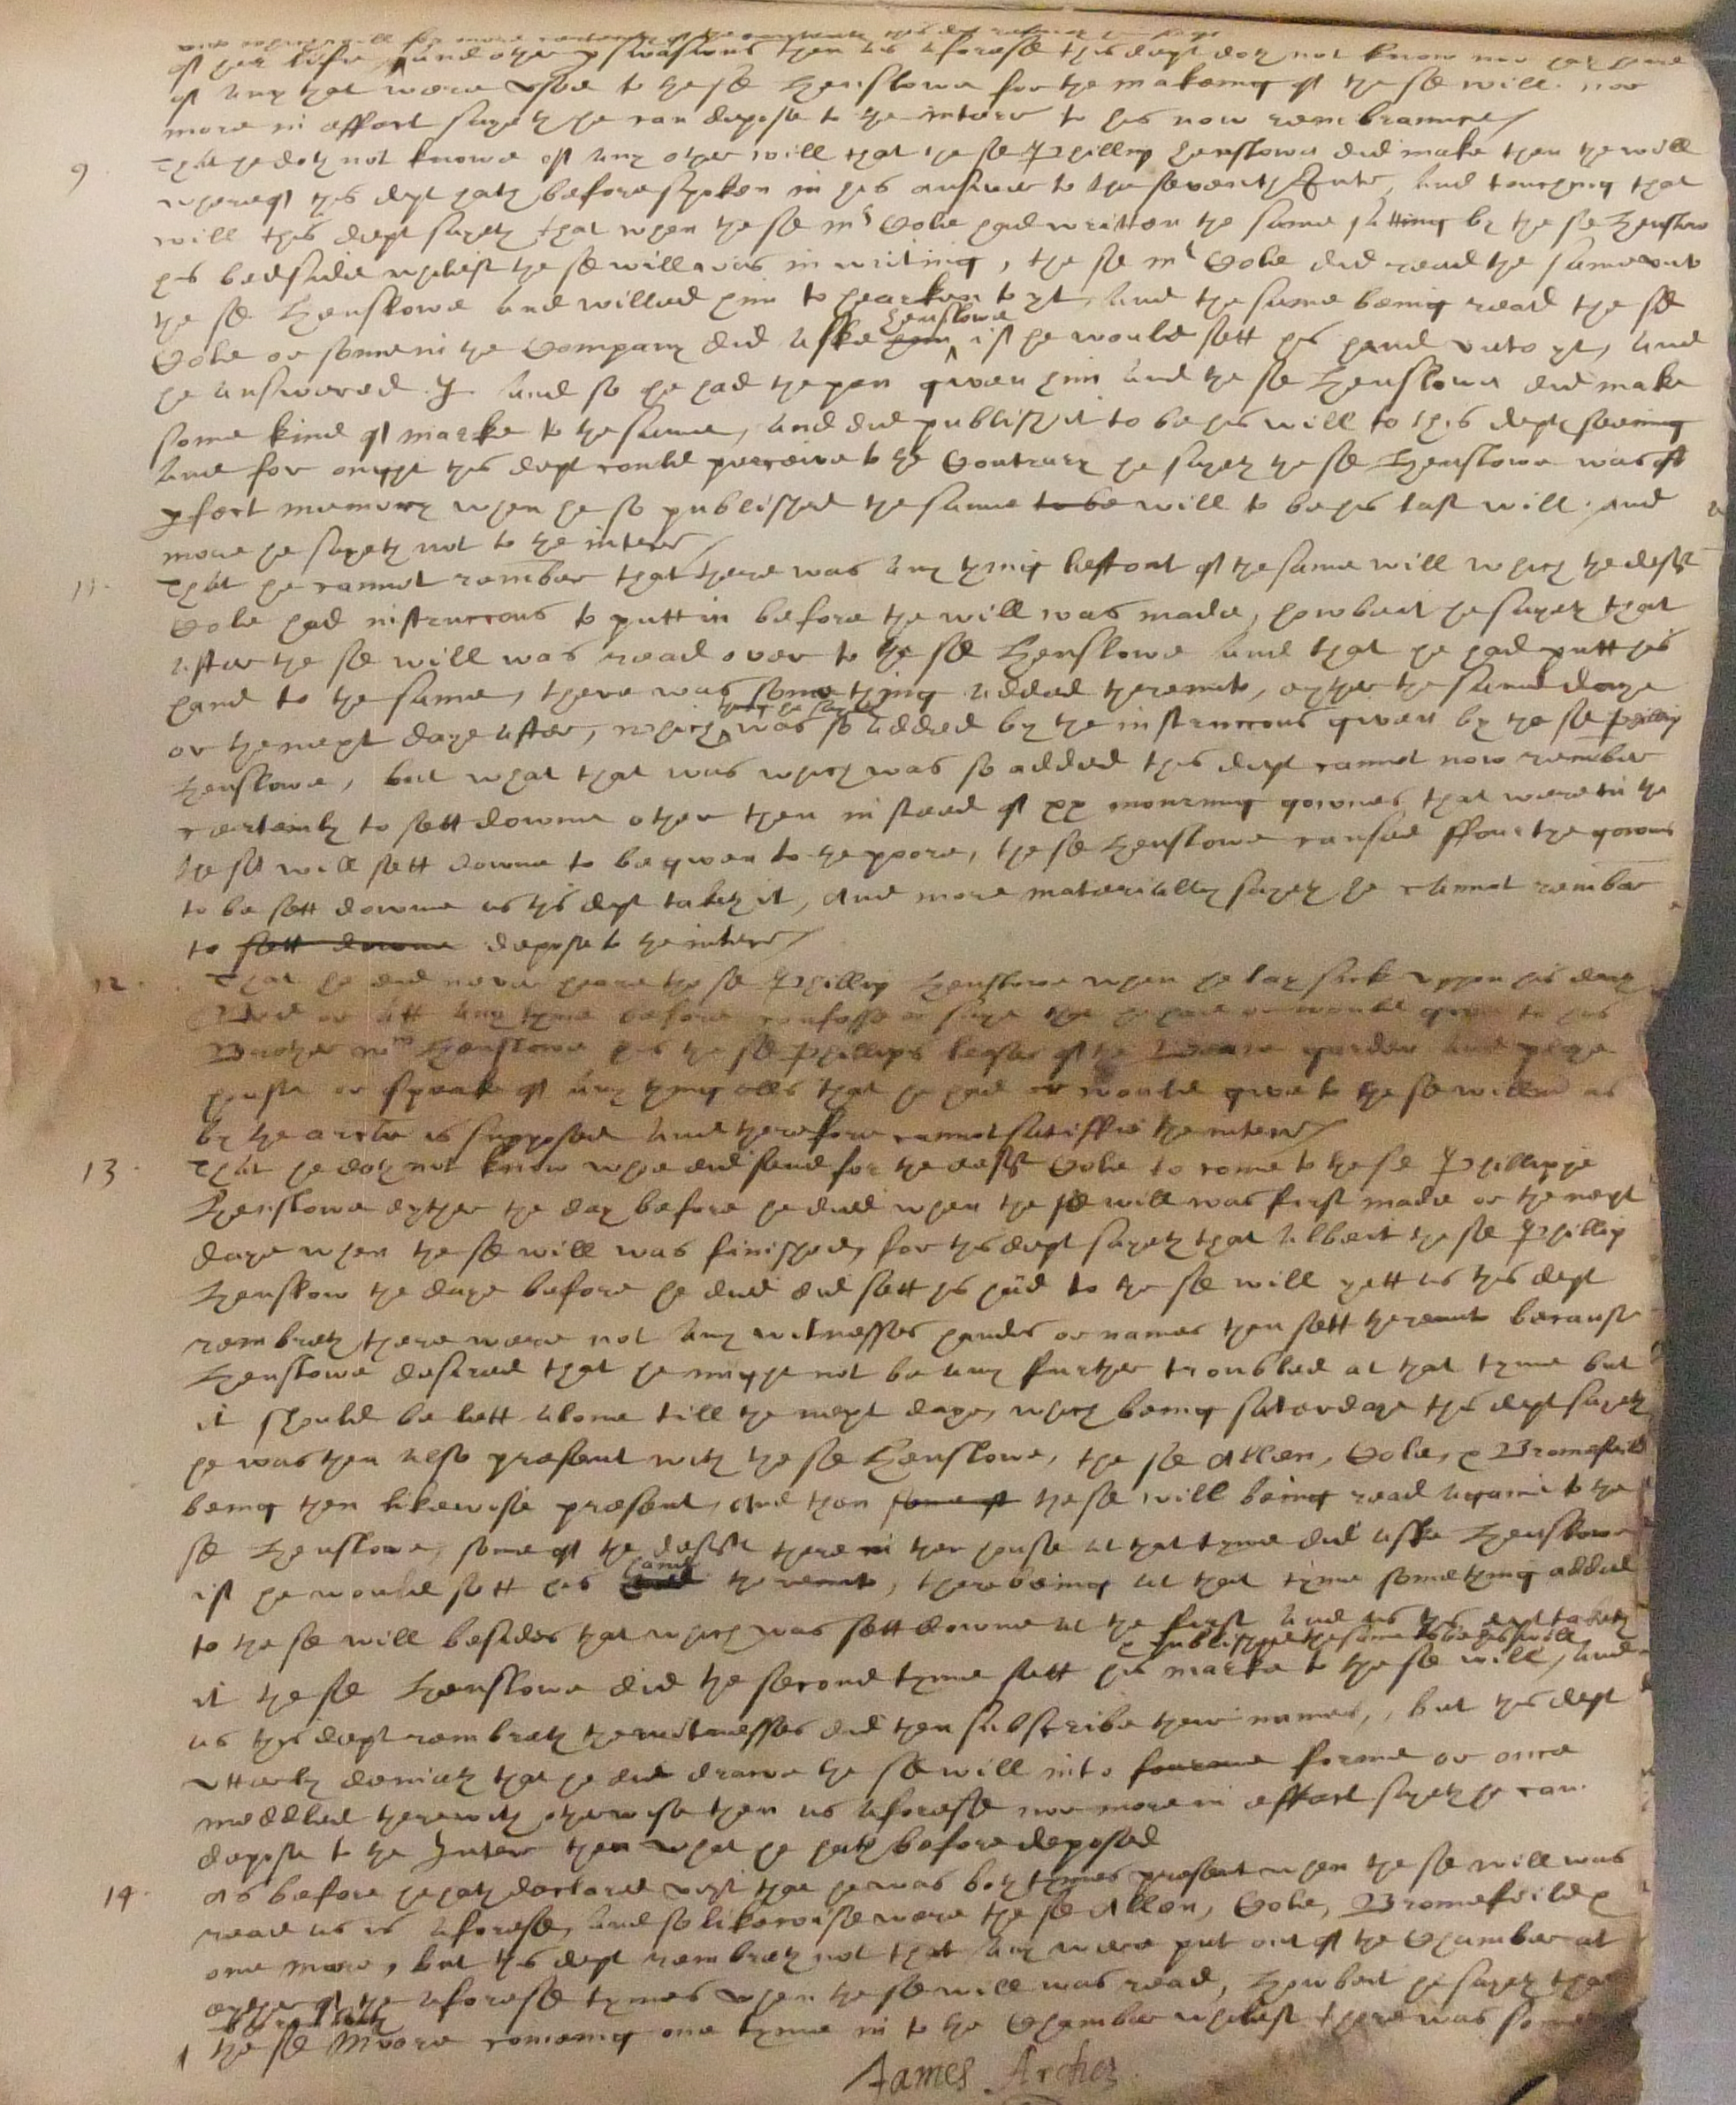 of her likes, and other pswasions then as aforesd this dept doth not know nor
of any that were vsed to the sd Henslowe for the makeing of the sd will. nor
more in effect sayeth he can depose to the interr to his now remembrannce/
9 That he doth not knowe of any other will that the sd Phillip Henslowe did make then the will
whereof this dept hath before spoken in his answere to the seventh Interr, and touching that
will this dept sayeth that when the sd mr Cole had written the same sitting by the sd Henslow
his bedside whilest the sd will was in writing, the sd mr Cole did read the same vnto
the sd Henslowe and willed him to hearken to yt, And the same being read the sd
Cole or some in the Company did aske him henslowe if he would sett his hand vnto yt, And
he answered I. And so he had the pen given him and the sd Henslowe did make
some kind of marke to the same, and did publish it to be his will to this depts seeing
And for ought this dept could perceive to the Contrary he sayeth the sd Henslowe was of
pfect memory when he so published the same to be will to be his last will. And
more he sayeth not to the interr/
11. That he cannot rember that there was any thing left out of the same will which the defft
Cole had instruccons to putt in before the will was made, howbeit he sayeth that
after the sd will was read over to the sd Henslowe and that he had putt his
hand to the same, there was some thing added therevnto, eyther the same daye
or the next daye after, which was so added by the instruccons given by the sd Phillip
Henslowe, but what that was which was so added this dept cannot now rember
certeinly to sett downe other then in stead of xx mourning gownes that were in the
the sd will sett downe to be given to the poore, the sd Henslowe caused ffourtye gownes
to be sett downe as this dept taketh it, And more materially sayeth he cannot rember
to sett downe depose to the interr/
12. That he did never heare the sd Phillip Henslowe when he lay sick vppon his death
bedd or att any tyme before confesse or saye that he had or would give to his
Brother Wm Henslowe his the sd Phillips lease of the Beare garden and playe
house or speak of any thing ells that he had or would give to the sd Willm as
by the article is supposed and therefore cannot satisffie the interr/
13. That he doth not know who did send for the defft Cole to come to the sd Phillippe
Henslowe eyther the day before he died when the sd will was first made or the next
daye when the sd will was finished, for this dept sayeth that Albeit the sd Phillip
Henslow the daye before he died did sett his hād to the sd will yett as this dept
rembreth there were not any witnesses handes or names then sett therevnto because
Henslowe desired that he might not be any further troubled at that tyme but
it should be lett alone till the next daye, which being saterdaye this dept sayeth
he was then also present with the sd Henslowe, the sd Allen, Cole, & Bromefeild
being then likewise present, And then some of the sd will being read againe to the
sd Henslowe, some of the deffts there in the house at that tyme did aske Henslowe
if he would sett his hand hand therevnto, there being at that tyme something added
to the sd will besides that which was sett downe at the first And as this dept taketh
it the sd Henslowe did the second tyme sett his marke to the sd will & publisshe the same to be his will, And
as this dept rembreth the witnesses did then subscribe their names, but this dept
vtterly denieth that he did drawe the sd will into fourme forme or once
meddled therewith otherwise then as aforesd nor more in effect sayeth he can
depose to the Interr then what he hath before deposed
14. As before he hath declared vizt that he was both tymes present when the sd will was
read as is aforesd, And so likewise were the sd Allen, Cole, Bromefeild &
one more, but this dept rembreth not that any were put out of the Chamber at
eyther of the aforesd tymes when the sd will was read, Howbeit he sayeth that
the sd Moore comeing one tyme in to the Chamber whilest there was some
James Archer